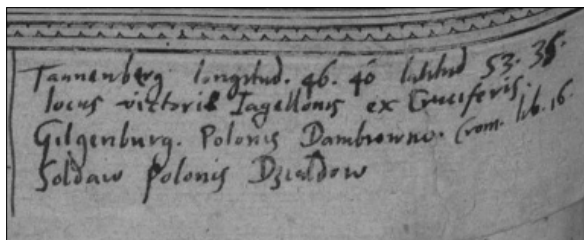 Tannenberg longitud. 46. 40 latitud 53. 35.
locus victorie Iagellonis ex Cruciferis.
Gilgenburg. Polonis Dambrowno. Crom. lib. 16.
Soldaw Polonis Dzialdow